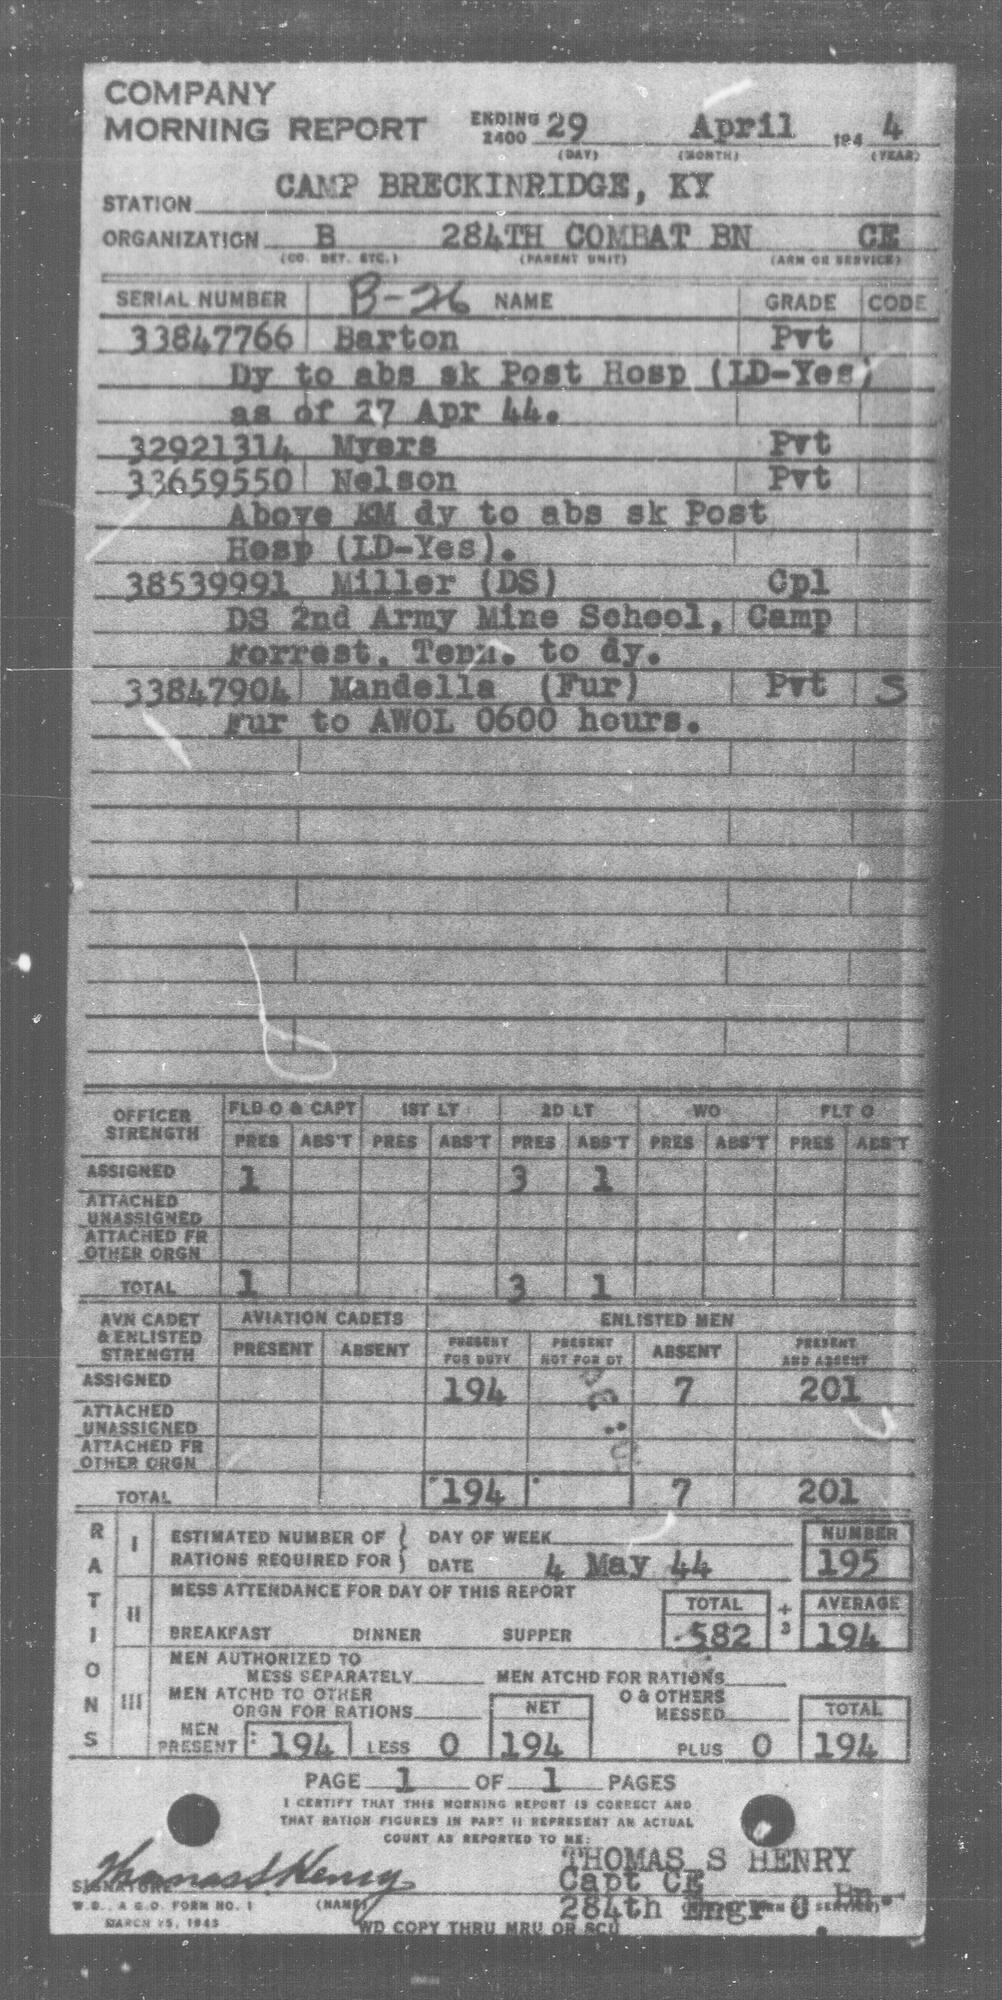 COMPANY
MORNING REPORT ENDING 2400 29 April 194 4
(DAY) (MONTH) (YEAR)
STATION CAMP BRECKINRIDGE, KY
ORGANIZATION B 284TH COMBAT BN CE
(CO. DET. ETC.) (PARENT UNIT) (ARM OR SERVICE)
SERIAL NUMBER B-26 NAME GRADE CODE
33847766 Barton Pvt
Dy to abs sk Post Hosp (LD-Yes)
as of 27 Apr 44.
32921314 Myers Pvt
33659550 Nelson Pvt
Above EM dy to abs sk Post
Hosp (LD-Yes).
38539991 Miller (DS) Cpl
DS 2nd Army Mine School, Camp
Forrest, Tenn. to dy.
33847904 Mandella (Fur) Pvt S
Fur to AWOL 0600 hours.
OFFICER STRENGTH FLD O & CAPT 1ST LT 2D LT WO FLT O
PRES ABS'T PRES ABS'T PRES ABS'T PRES ABS'T PRES ABS'T
ASSIGNED 1 3 1
ATTACHED UNASSIGNED
ATTACHED FR OTHER ORGN
TOTAL 1 3 1
AVN CADET & ENLISTED STRENGTH AVIATION CADETS ENLISTED MEN
PRESENT ABSENT PRESENT FOR DUTY PRESENT NOT FOR DY ABSENT PRESENT AND ABSENT
ASSIGNED 194 7 201
ATTACHED UNASSIGNED
ATTACHED FR OTHER ORGN
TOTAL 194 7 201
RATIONS
I ESTIMATED NUMBER OF DAY OF WEEK NUMBER
RATIONS REQUIRED FOR DATE 4 May 44 195
II MESS ATTENDANCE FOR DAY OF THIS REPORT TOTAL + AVERAGE
BREAKFAST DINNER SUPPER 582 3 194
III MEN AUTHORIZED TO
MESS SEPARATELY MEN ATCHD FOR RATIONS
MEN ATCHD TO OTHER NET O & OTHERS
ORGN FOR RATIONS MESSED TOTAL
MEN PRESENT 194 LESS 0 194 PLUS 0 194
PAGE 1 OF 1 PAGES
I CERTIFY THAT THIS MORNING REPORT IS CORRECT AND
THAT RATION FIGURES IN PART II REPRESENT AN ACTUAL
COUNT AS REPORTED TO ME:
Thomas S Henry THOMAS S HENRY
SIGNATURE Capt CE
W.D., A.G.O. FORM NO. 1 (NAME) 284th Engr C Bn.
MARCH 25, 1943
WD COPY THRU MRU OR SCU